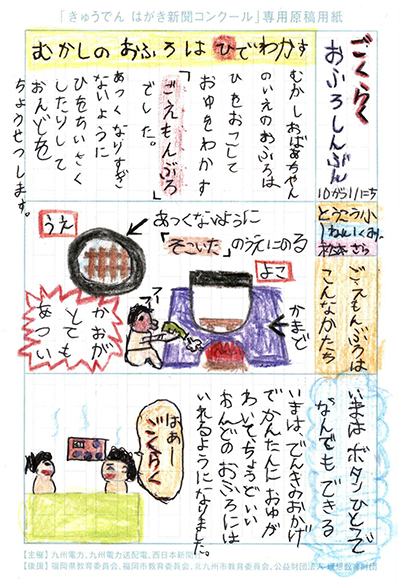 「きゅうでん はがき新聞コンクール」専用原稿用紙
ごくらく
おふろしんぶん
10がつ1にち
とうごう小
1ねん1くみ
松本 さら
むかしのおふろはひでわかす
むかしおばあちゃん
のいえのおふろは
ひをおこして
おゆをわかす
「ごえもんぶろ」
でした。
あつくなりすぎ
ないように
ひをちいさく
したりして
おんどを
ちょうせつします。
ごえもんぶろは
こんなかたち
うえ
あつくないように
「そこいた」のうえにのる
よこ
かまど
フー
フー
かおが
とても
あつい
いまはボタンひとつで
なんでもできる
いまはでんきのおかげ
でかんたんにおゆが
わいてちょうどいい
おんどのおふろには
いれるようになりました。
はぁー
ごくらく
【主催】九州電力、九州電力送配電、西日本新聞社
【後援】福岡県教育委員会、福岡市教育委員会、北九州市教育委員会、公益財団法人 理想教育財団